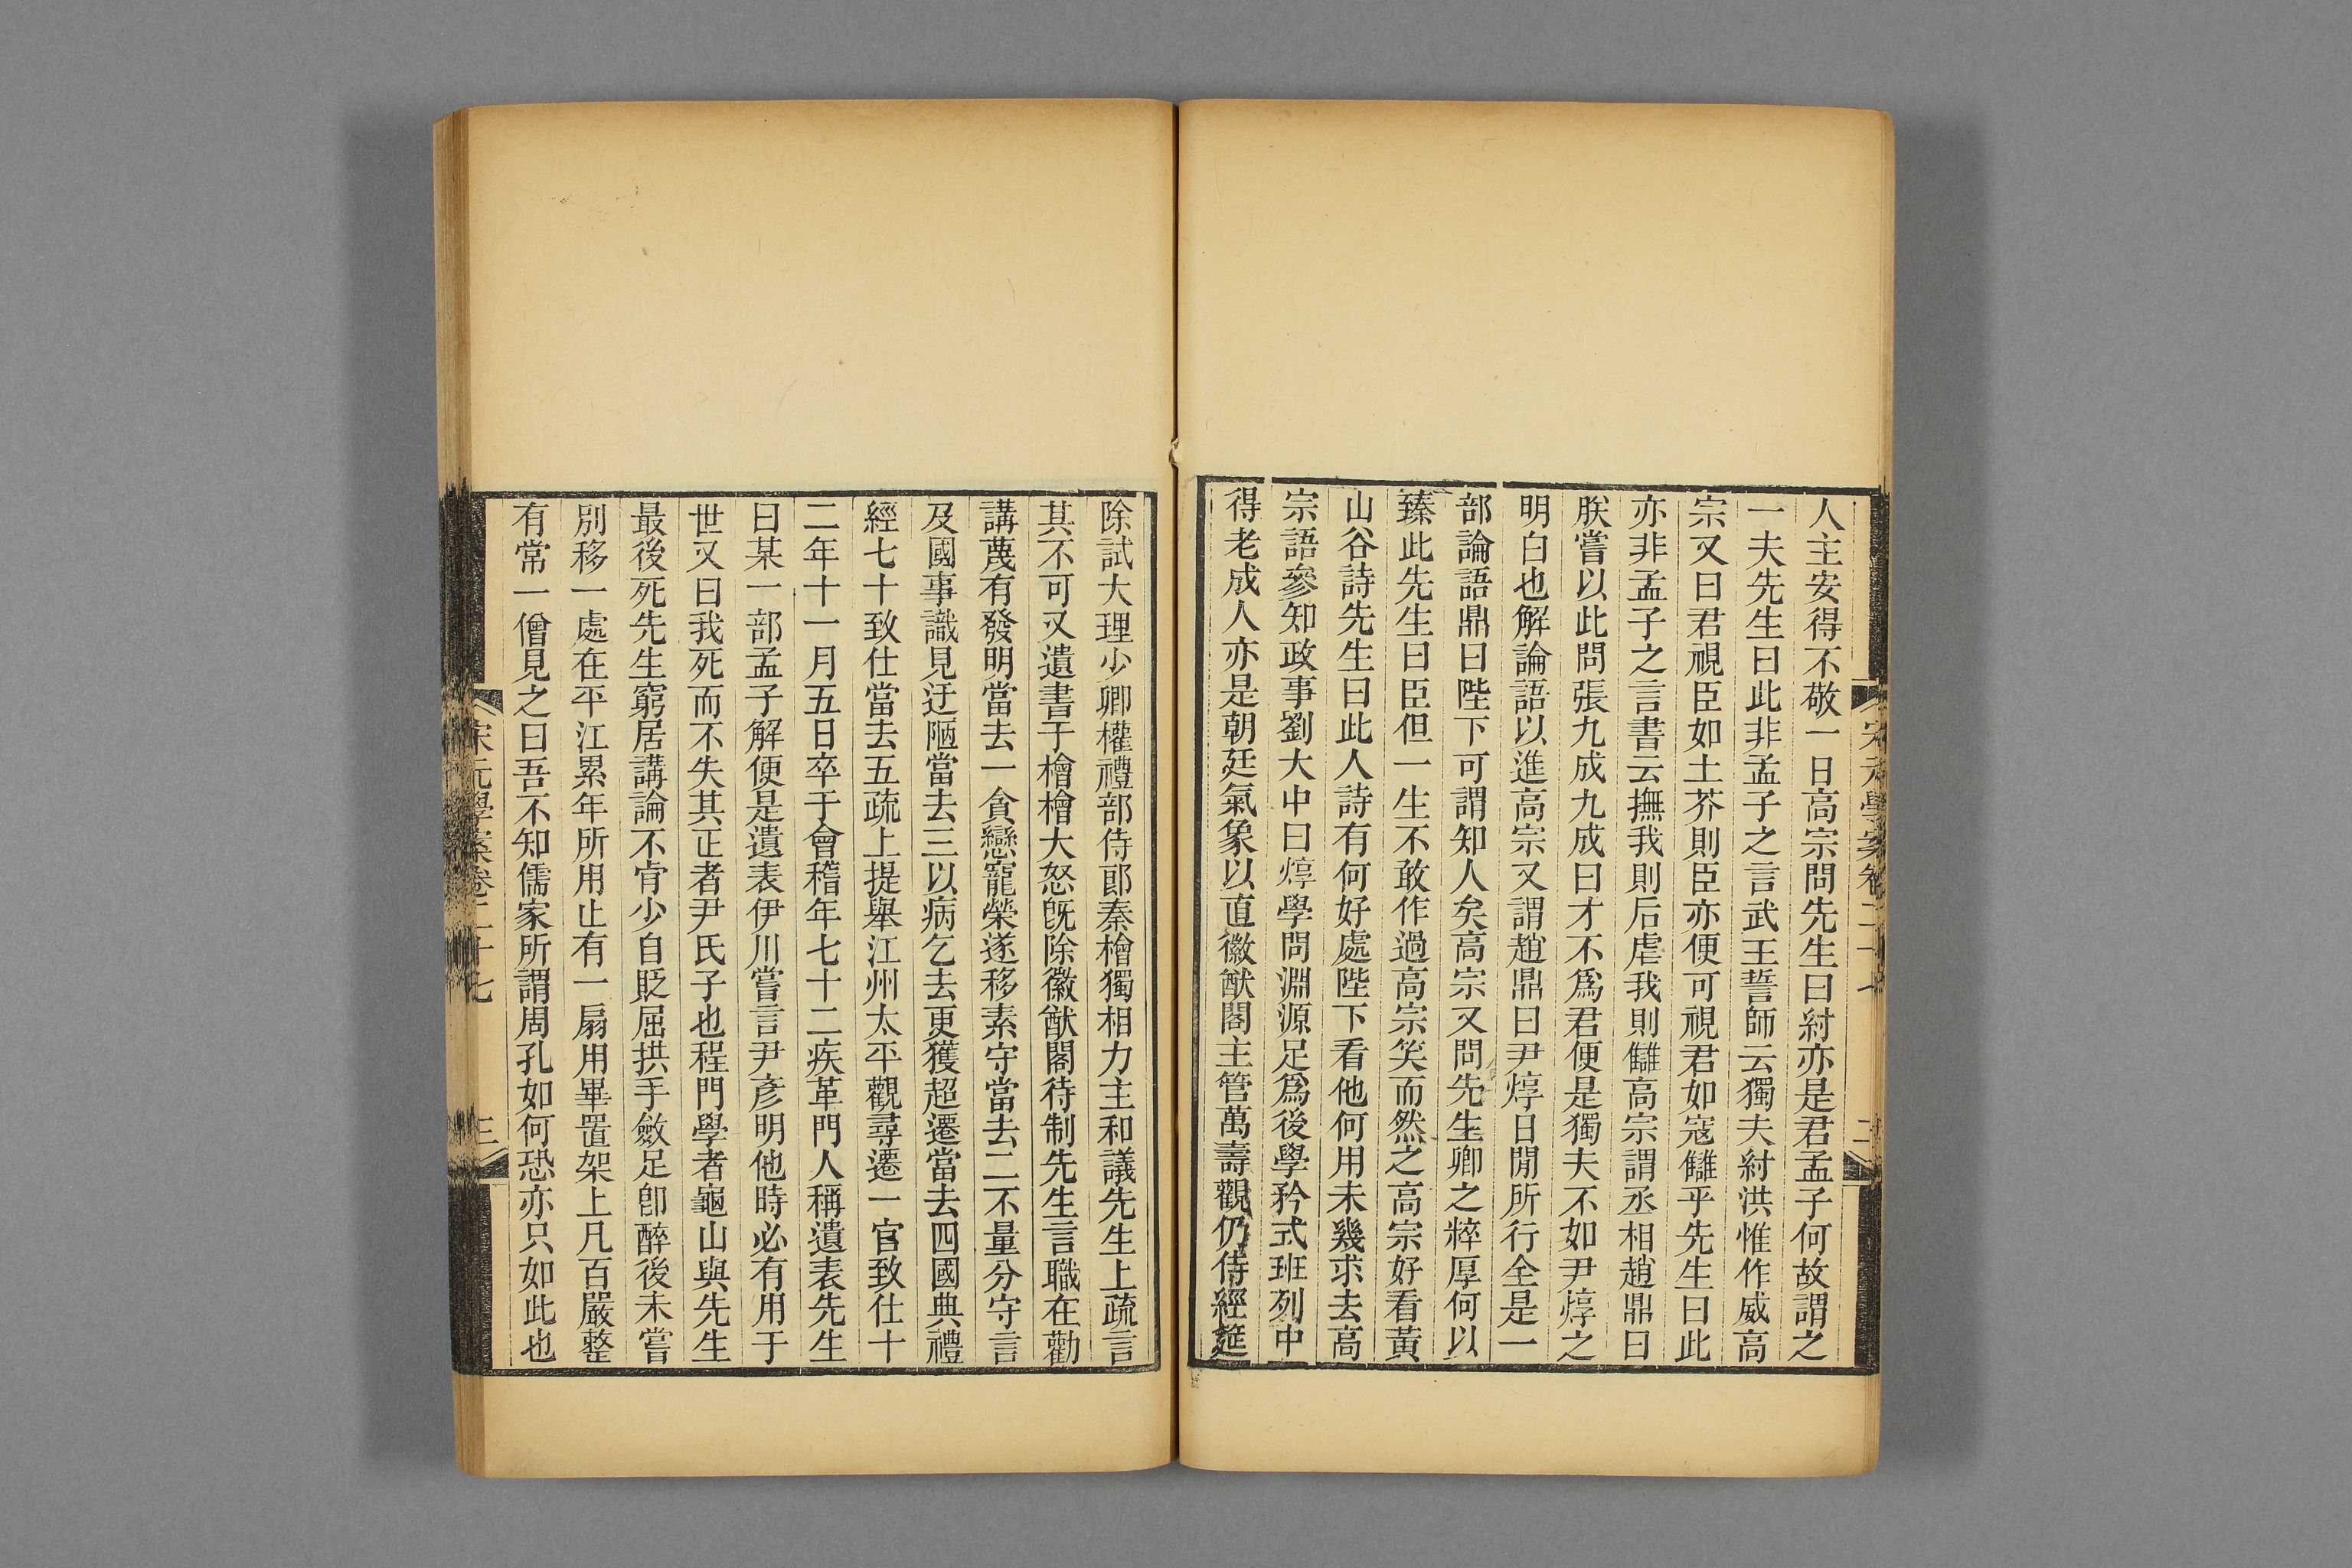 人主安得不敬一日高宗問先生曰紂亦是君孟子何故謂之
一夫先生曰此非孟子之言武王誓師云獨夫紂洪惟作威高
宗又曰君視臣如土芥則臣亦便可視君如寇讎乎先生曰此
亦非孟子之言書云撫我則后虐我則讎高宗謂丞相趙鼎曰
朕嘗以此問張九成九成曰才不爲君便是獨夫不如尹焞之
明白也解論語以進高宗又謂趙鼎曰尹焞日閒所行全是一
部論語鼎曰陛下可謂知人矣高宗又問先生卿之粹厚何以
臻此先生曰臣但一生不敢作過高宗笑而然之高宗好看黃
山谷詩先生曰此人詩有何好處陛下看他何用未幾求去高
宗語參知政事劉大中曰焞學問淵源足爲後學矜式班列中
得老成人亦是朝廷氣象以直徽猷閣主管萬壽觀仍侍經筵
除試大理少卿權禮部侍郎秦檜獨相力主和議先生上疏言
其不可又遺書于檜檜大怒旣除徽猷閣待制先生言職在勸
講蔑有發明當去一貪戀寵榮遂移素守當去二不量分守言
及國事識見迂陋當去三以病乞去更獲超遷當去四國典禮
經七十致仕當去五疏上提舉江州太平觀尋遷一官致仕十
二年十一月五日卒于會稽年七十二疾革門人稱遺表先生
曰某一部孟子解便是遺表伊川嘗言尹彥明他時必有用于
世又曰我死而不失其正者尹氏子也程門學者龜山與先生
最後死先生窮居講論不肯少自貶屈拱手斂足卽醉後未嘗
別移一處在平江累年所用止有一扇用畢置架上凡百嚴整
有常一僧見之曰吾不知儒家所謂周孔如何恐亦只如此也
宋元學案卷二十七
三